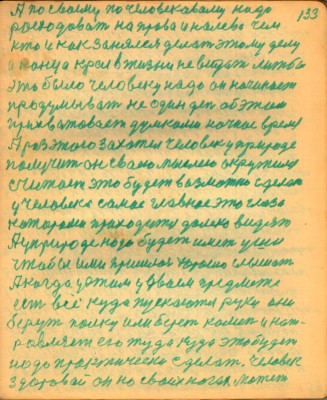 133
А по своему по человекавому надо
расходоват на права и налево чем
кто и как занялся делат этому делу
и конца края в жизни не видат лиш бы
это было человеку надо он начинает
продумыват не один ден об этам
прихватовает думками ночное время
А раз этого захотел человек у природе
получит он сваею мыслею окружился
считает это будет возможно сделат
у человека самое главное это глаза
каторами приходится далеко видят
А у природе надо будет имет уши
чтобы ими пришлос хорошо слышат
А когда у этим у двоем предмоте
ест всё куда пускаются руки они
берут палку или берет камен и нап-
равляет его туда куда это будет
надо практически сделат. Человек
здоровай он на своих ногах может